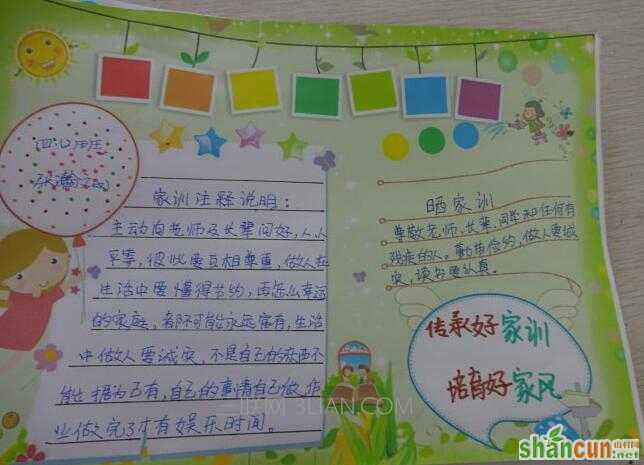 四(2)班
家训注释说明：
主动向老师及长辈问好，人人
平等，彼此要互相尊重，做人在
生活中要懂得节约，再怎么幸运
的家庭，都不可能永远富有，生活
中做人要诚实，不是自己的东西不
能占据为己有，自己的事情自己做，作
业做完了才有娱乐时间。
晒家训
尊敬老师、长辈、同学和任何有
残疾的人。勤节俭约，做人要诚
实，读书要认真。
传承好家训
培育好家风
3LIAN.COM
shancun
山村网
.net